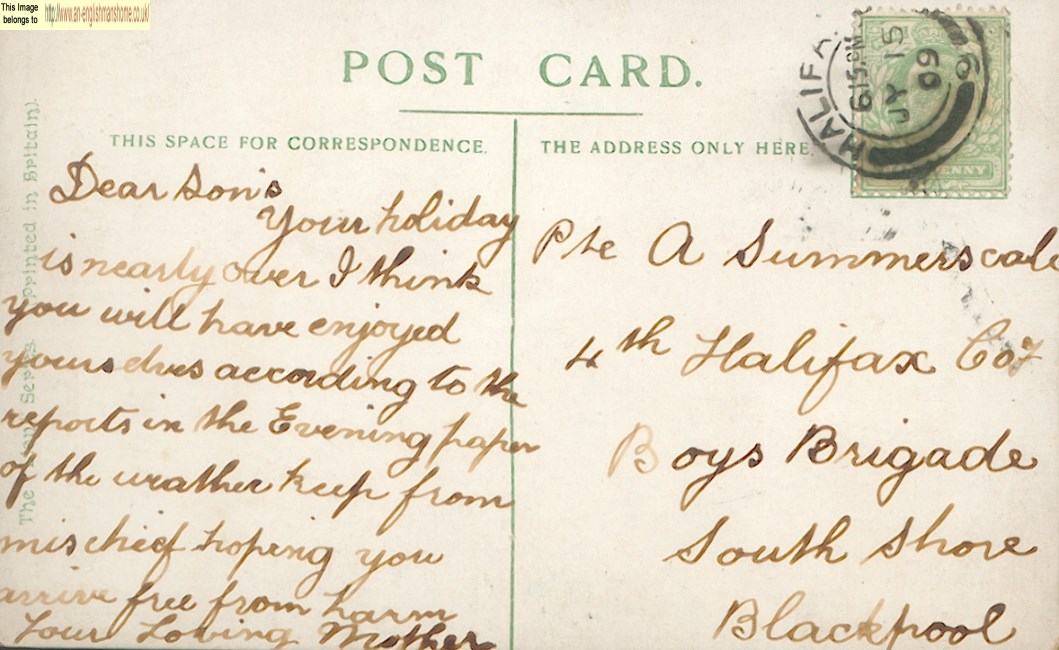 This Image
belongs to
http://www.an-englishmanshome.co.uk/
POST CARD.
THIS SPACE FOR CORRESPONDENCE.
Dear Son's
Your holiday
is nearly over I think
you will have enjoyed
yourselves according to the
reports in the Evening paper
of the weather keep from
mischief hoping you
arrive free from harm
Your Loving Mother
THE ADDRESS ONLY HERE.
Pte A Summerscale
4th Halifax Coy
Boys Brigade
South Shore
Blackpool
HALIFAX
6 15 PM
JY 15
09
printed in Britain).